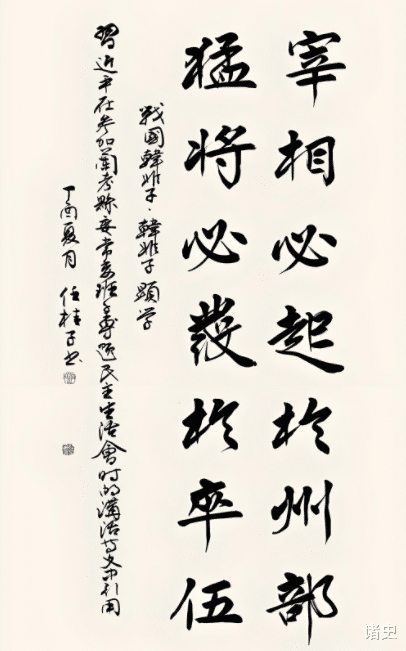 宰相必起於州部
猛将必發於卒伍
戰國韓非子·韓非子 顯学
習近平在参加蘭考縣委常委班子專題民主生活會时的講话等文中引用
丁酉夏月 任桂子书
诸史